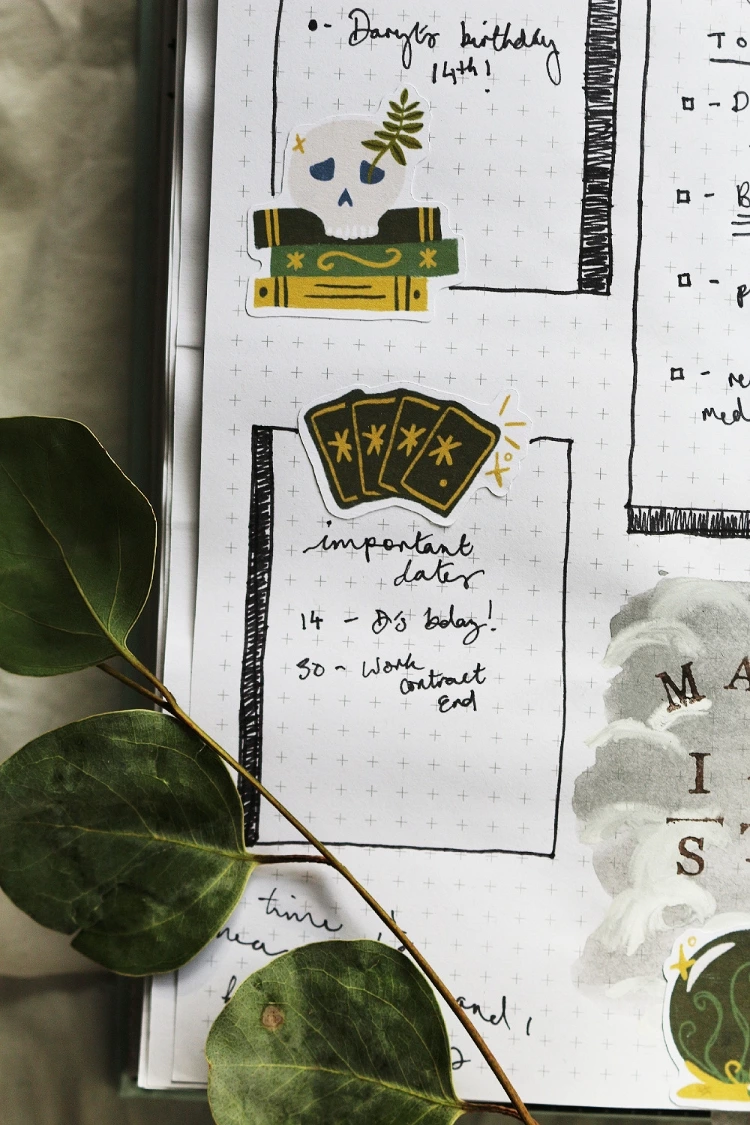 - Daryl's birthday
14th!
TO
- D
- B
-
- re
med
important
dates
14 - D's bday!
30 - Work
contract
End
MA
I
ST
time is
and,